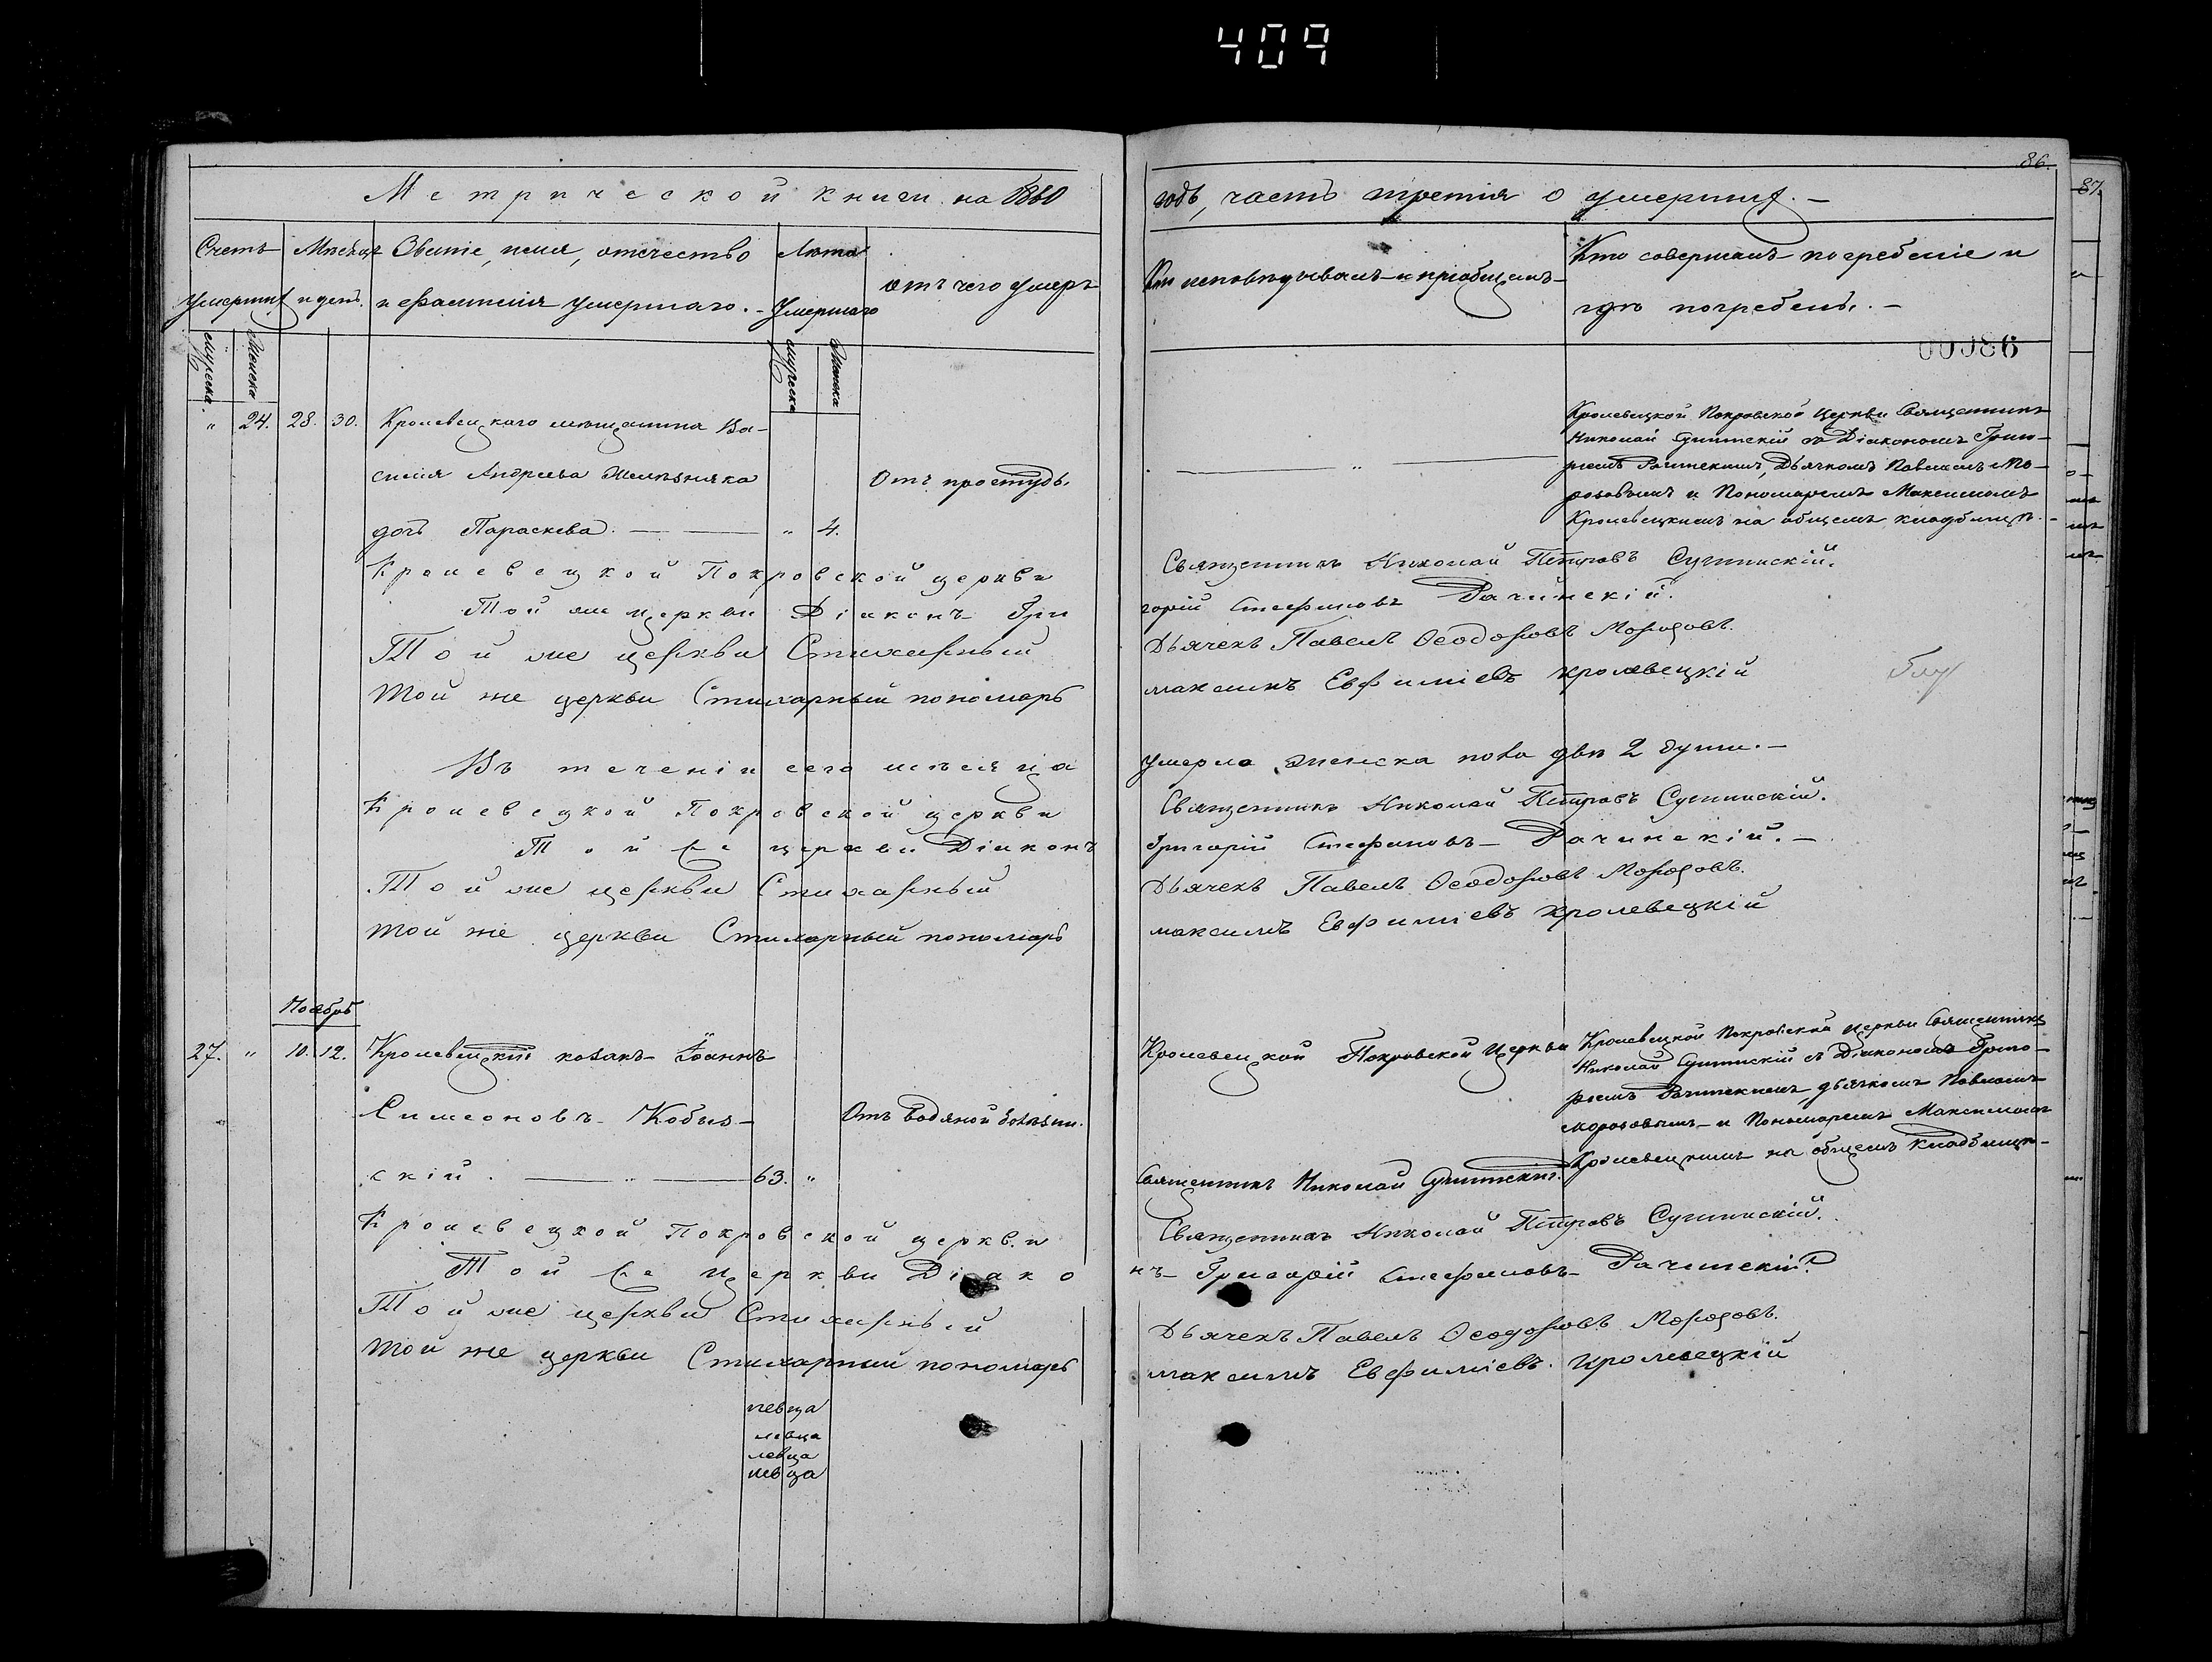 409
86.
87.
Метрической книги на 1860
годъ, часть третія о умершихъ. —
Счетъ умершихъ
Мѣсяцъ и день.
Званіе, имя, отчество и фамилія умершаго. —
Лѣта умершаго
отъ чего умеръ
Кто исповѣдывалъ и пріобщалъ
Кто совершалъ погребеніе и гдѣ погребены. —
мужеска.
женска
мужеска
женска
00086
" 24. 28. 30. Кролевецкаго мѣщанина Ва-
силія Андреева Желѣзняка
дочь Параскева. — " 4.
Отъ простуды.
— " —
Кролевецкой Покровской Церкви Священникъ
Николай съ Діакономъ Григо-
ріемъ Рачинскимъ, Дьячкомъ Павломъ Мо-
розовымъ и Пономаремъ Максимомъ
Кролевецкимъ на общемъ кладбищѣ. —
Кролевецкой Покровской церкви Священникъ Николай Петровъ
Той же церкви Діаконъ Григорій Стефановъ Рачинскій.
Той же церкви Стихарный Дьячекъ Павелъ Ѳеодоровъ Морозовъ.
Той же церкви Стихарный пономарь Максимъ Евфиміевъ Кролевецкій
Въ теченіи сего мѣсяца умерло женска пола двѣ 2 души. —
Кролевецкой Покровской церкви Священникъ Николай Петровъ
Той же церкви Діаконъ Григорій Стефановъ Рачинскій. —
Той же церкви Стихарный Дьячекъ Павелъ Ѳеодоровъ Морозовъ.
Той же церкви Стихарный пономарь Максимъ Евфиміевъ Кролевецкій
Ноябрь
27. " 10. 12. Кролевецкій козакъ Іоаннъ
Симеоновъ Кобыл-
скій. — " — 63. "
Отъ водяной болѣзни.
Кролевецкой Покровской Церкви
Священникъ Николай
Кролевецкой Покровской церкви Священникъ
Николай съ Діакономъ Григо-
ріемъ Рачинскимъ, дьячкомъ Павломъ
Морозовымъ и Пономаремъ Максимомъ
Кролевецкимъ на общемъ Кладбищѣ —
Кролевецкой Покровской церкви Священникъ Николай Петровъ
Той же Церкви Діаконъ Григорій Стефановъ Рачинскій
Той же церкви Стихарный Дьячекъ Павелъ Ѳеодоровъ Морозовъ.
Той же церкви Стихарный пономарь Максимъ Евфиміевъ Кролевецкій